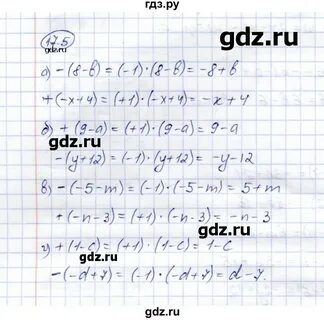 gdz.ru
17.5
gdz.ru
а) -(8-в) = (-1)·(8-в) = -8+в
+(-х+4) = (+1)·(-х+4) = -х+4
б) +(9-а) = (+1)·(9-а) = 9-а
-(у+12) = (-1)·(у+12) = -у-12
в) -(-5-m) = (-1)·(-5-m) = 5+m
+(-n-3) = (+1)·(-n-3) = -n-3
г) +(1-c) = (+1)·(1-c) = 1-c
-(-d+7) = (-1)·(-d+7) = d-7.
gdz.ru
gdz.ru